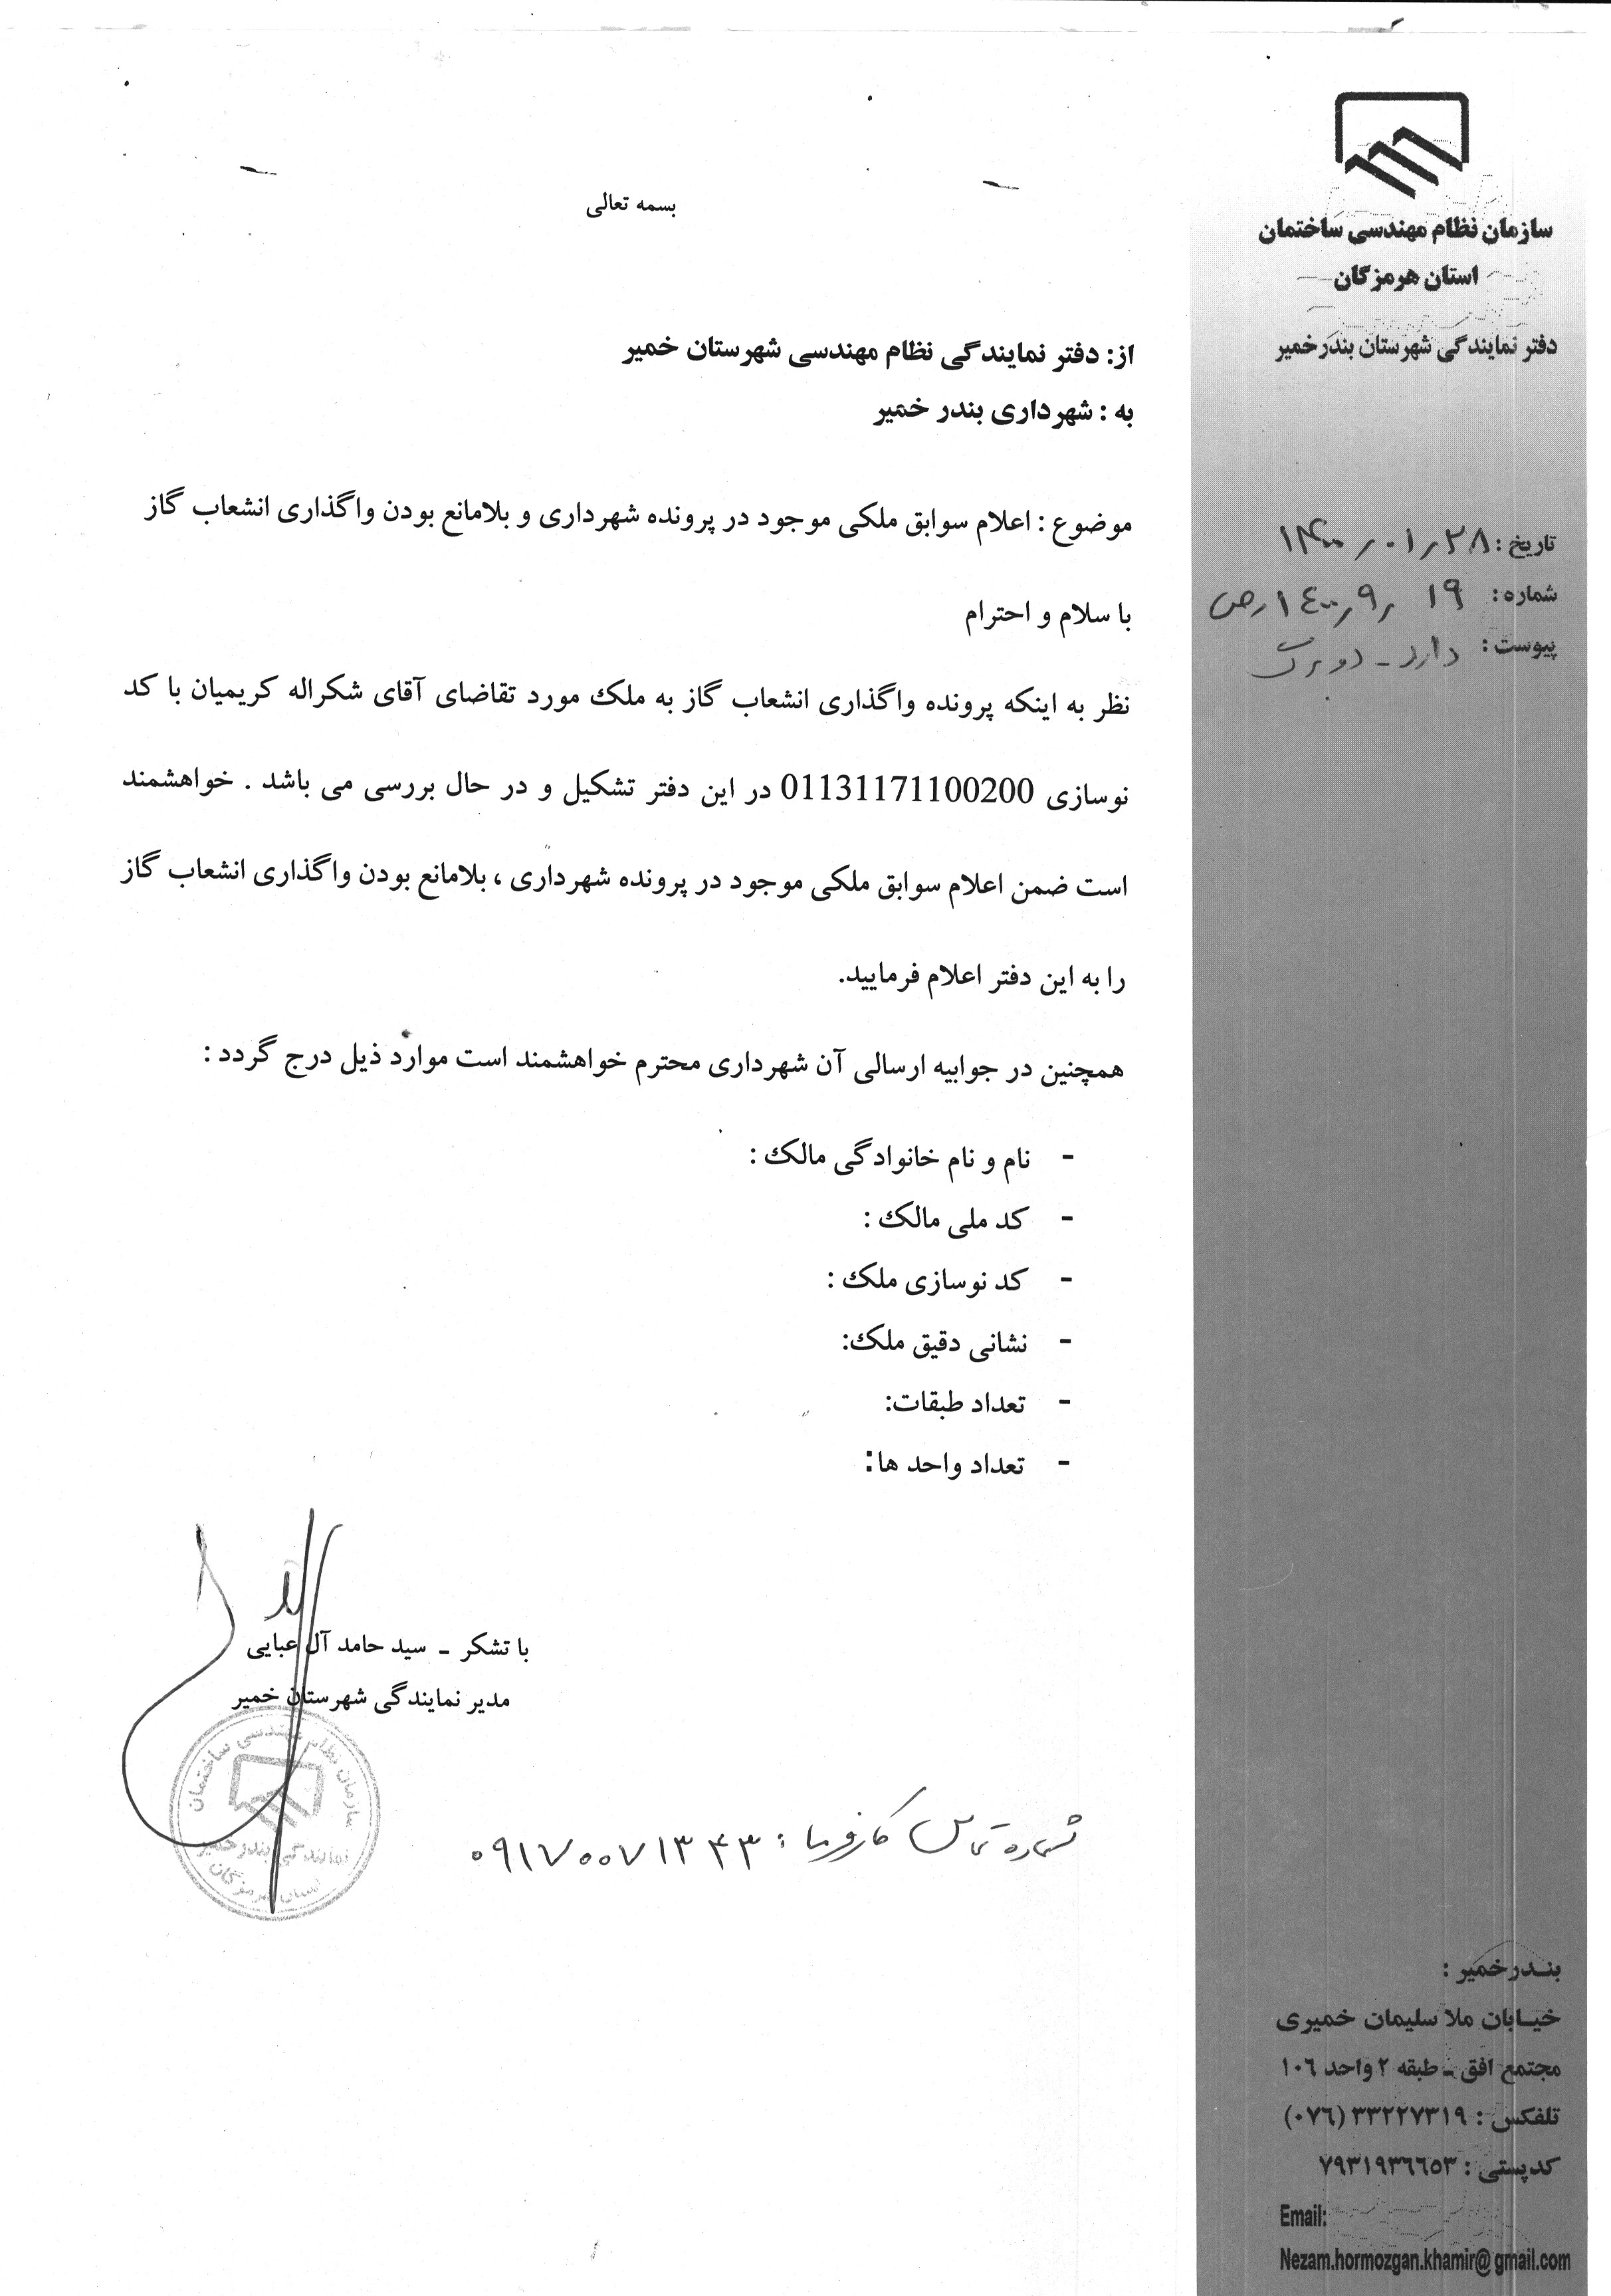 سازمان نظام مهندسی ساختمان
استان هرمزگان
دفتر نمایندگی شهرستان بندرخمیر
تاریخ: ۱۴۰۰٫۰۱٫۲۸
شماره: ۱۹ ٫۹٫۱٤۰۰٫ص
پیوست: دارد - دو برگ
بسمه تعالی
از: دفتر نمایندگی نظام مهندسی شهرستان خمیر
به : شهرداری بندر خمیر
موضوع : اعلام سوابق ملکی موجود در پرونده شهرداری و بلامانع بودن واگذاری انشعاب گاز
با سلام و احترام
نظر به اینکه پرونده واگذاری انشعاب گاز به ملک مورد تقاضای آقای شکراله کریمیان با کد
نوسازی 01131171100200 در این دفتر تشکیل و در حال بررسی می باشد . خواهشمند
است ضمن اعلام سوابق ملکی موجود در پرونده شهرداری ، بلامانع بودن واگذاری انشعاب گاز
را به این دفتر اعلام فرمایید.
همچنین در جوابیه ارسالی آن شهرداری محترم خواهشمند است موارد ذیل درج گردد :
- نام و نام خانوادگی مالک :
- کد ملی مالک :
- کد نوسازی ملک :
- نشانی دقیق ملک:
- تعداد طبقات:
- تعداد واحد ها:
با تشکر - سید حامد آل عبایی
مدیر نمایندگی شهرستان خمیر
سازمان نظام مهندسی ساختمان
نمایندگی بندرخمیر
استان هرمزگان
شماره تماس کارفرما : ۰۹۱۷۰۰۷۱۳۴۳
بندرخمیر :
خیابان ملا سلیمان خمیری
مجتمع افق - طبقه ۲ واحد ۱۰٦
تلفکس : ۳۳۲۲۷۳۱۹ (۰۷٦)
کدپستی : ۷۹۳۱۹۳٦٦۵۳
Email:
Nezam.hormozgan.khamir@gmail.com